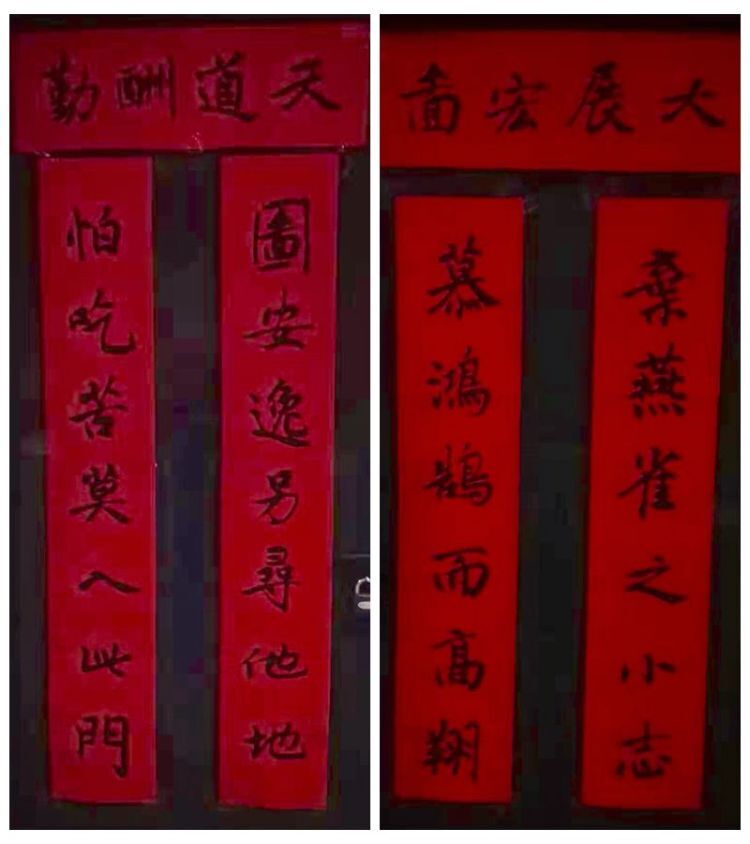 天道酬勤
圖安逸另尋他地
怕吃苦莫入此門
大展宏啚
棄燕雀之小志
慕鴻鵠而高翔